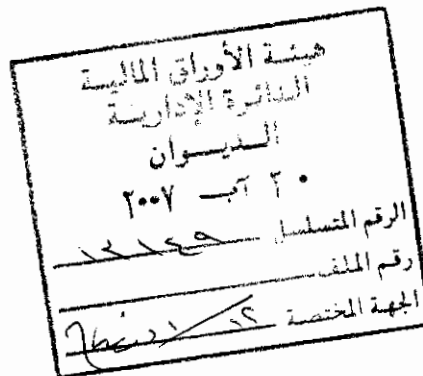 هيئة الأوراق المالية
الدائرة الإدارية
الديوان
٢٠ آب ٢٠٠٧
الرقم المتسلسل ١٢١٤٩
رقم الملف
الجهة المختصة